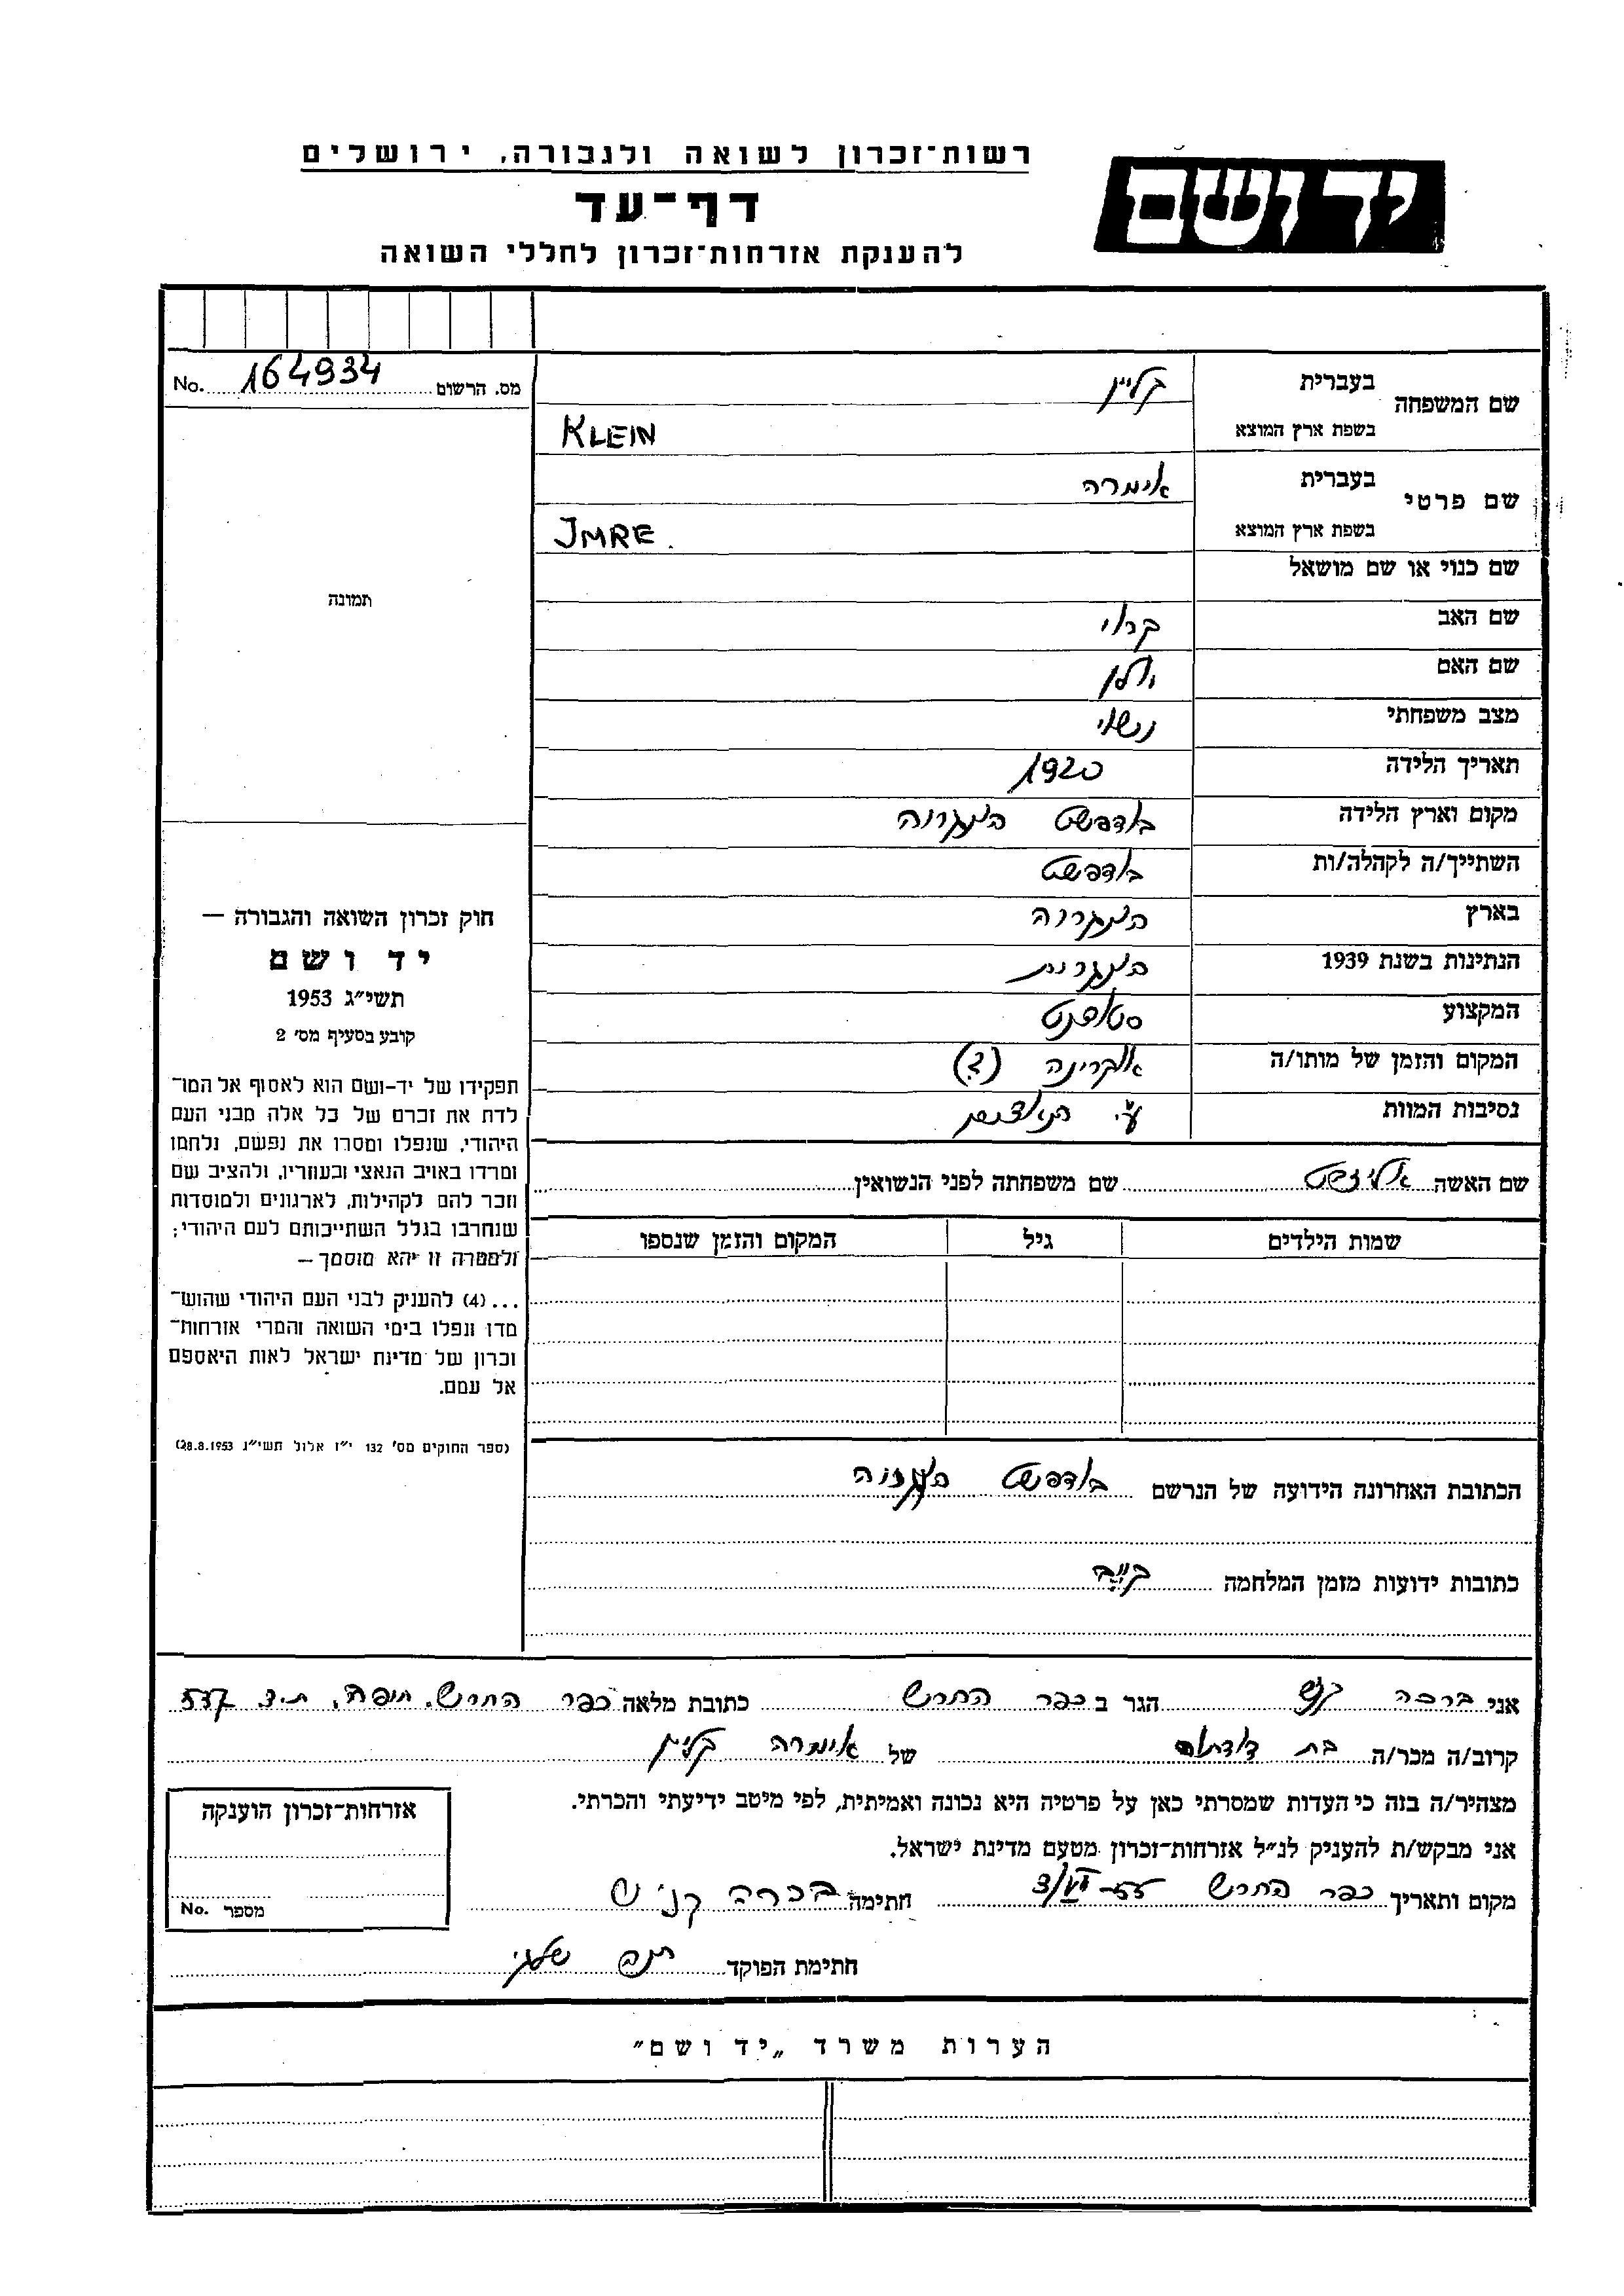 יד ושם
רשות־זכרון לשואה ולגבורה, ירושלים
דף־עד
להענקת אזרחות־זכרון לחללי השואה
מס. הרשום 164934 No.
שם המשפחה
בעברית קליין
בשפת ארץ המוצא KLEIN
שם פרטי
בעברית אימרה
בשפת ארץ המוצא IMRE.
שם כנוי או שם מושאל
שם האב קרוי
שם האם
מצב משפחתי נשוי
תאריך הלידה 1920
מקום וארץ הלידה בודפשט הונגריה
השתייך/ה לקהלה/ות בודפשט
בארץ הונגריה
הנתינות בשנת 1939 הונגרית
המקצוע סטודנט
המקום והזמן של מותו/ה אוקרינה (?)
נסיבות המוות ע"י
תמונה
חוק זכרון השואה והגבורה —
יד ושם
תשי״ג 1953
קובע בסעיף מס׳ 2
תפקידו של יד-ושם הוא לאסוף אל המו־
לדת את זכרם של כל אלה מבני העם
היהודי, שנפלו ומסרו את נפשם, נלחמו
ומרדו באויב הנאצי ובעוזריו, ולהציב שם
וזכר להם לקהילות, לארגונים ולמוסדות
שנחרבו בגלל השתייכותם לעם היהודי;
ולמטרה זו יהא מוסמך —
...(4) להעניק לבני העם היהודי שהוש־
מדו ונפלו בימי השואה והמרי אזרחות־
זכרון של מדינת ישראל לאות היאספם
אל עמם.
(ספר החוקים מס׳ 132 י״ז אלול תשי״ג 28.8.1953)
שם האשה אליזבט שם משפחתה לפני הנשואין
שמות הילדים גיל המקום והזמן שנספו
הכתובת האחרונה הידועה של הנרשם בודפשט הונגריה
כתובות ידועות מזמן המלחמה
אני ברכה הגר ב כפר החרש כתובת מלאה כפר החרש, חיפה, ת.ד
קרוב/ה מכר/ה בת של אימרה קליין
מצהיר/ה בזה כי העדות שמסרתי כאן על פרטיה היא נכונה ואמיתית, לפי מיטב ידיעתי והכרתי.
אני מבקש/ת להעניק לנ״ל אזרחות־זכרון מטעם מדינת ישראל.
מקום ותאריך כפר החרש חתימה ברכה
חתימת הפוקד
אזרחות־זכרון הוענקה
מספר No.
הערות משרד „יד ושם״